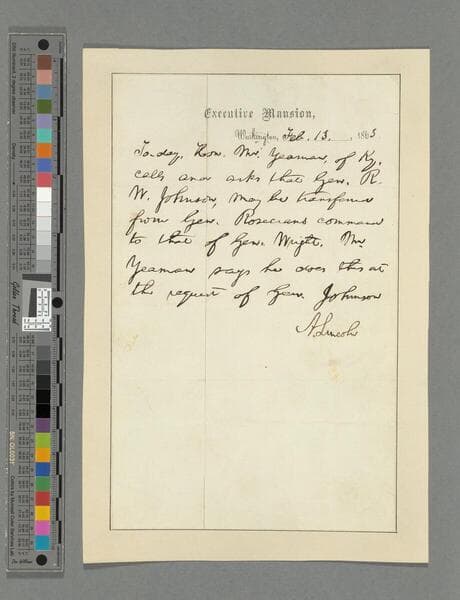 Executive Mansion,
Washington, Feb. 13, 1863
To-day, Hon. Mr. Yeaman, of Ky.
calls and asks that Gen. R.
W. Johnson, may be transferred
from Gen. Rosecrans command
to that of Gen. Wright. Mr.
Yeaman says he does this at
the request of Gen. Johnson
A. Lincoln
Golden Thread